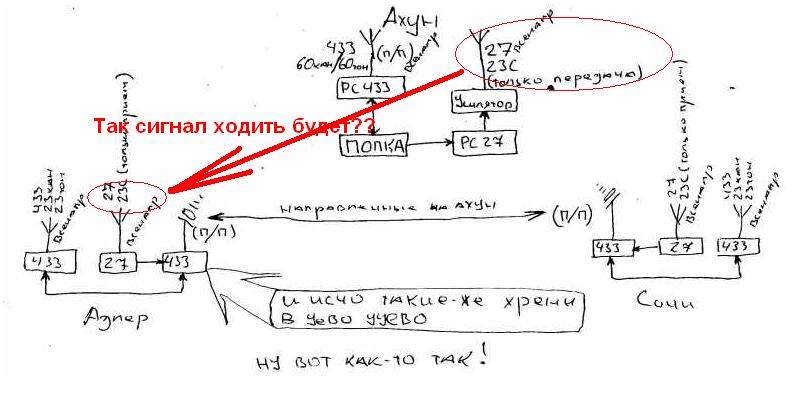 Ахун
433
60кан/60тон
(п/п)
Всенапр
27
Всенапр
23С
(только передача)
РС433
Усилятор
Так сигнал ходить будет??
ПОПКА
РС 27
433
23кан
23тон
Всенапр
27
23С (только прием)
Всенапр
(п/п)
направленные на Ахун
(п/п)
27
23С (только прием)
Всенапр
433
23кан
23тон
Всенапр
433
27
433
433
27
433
Адлер
Сочи
И ИСЧО ТАКИЕ-ЖЕ ХРЕНИ
В УЕВО УУЕВО
НУ ВОТ КАК-ТО ТАК!